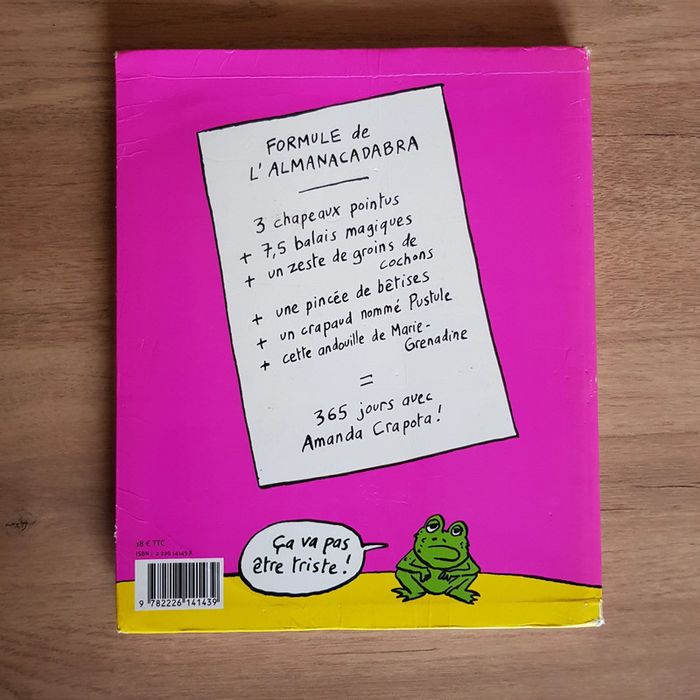 FORMULE de
L'ALMANACADABRA
3 chapeaux pointus
+ 7,5 balais magiques
+ un zeste de groins de
cochons
+ une pincée de bêtises
+ un crapaud nommé Pustule
+ cette andouille de Marie-
Grenadine
=
365 jours avec
Amanda Crapota !
Ça va pas
être triste !
18 € TTC
ISBN : 2 226 14143 X
9 782226 141439